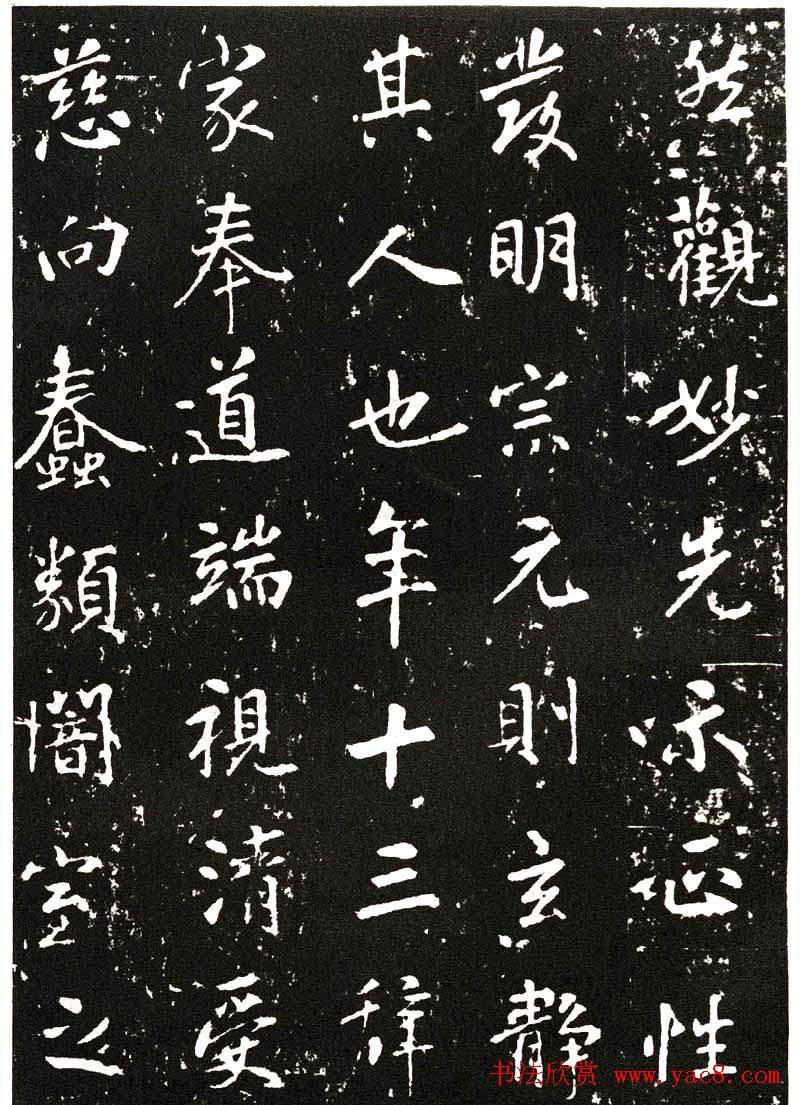 然觀妙先味正性
發明宗元則玄靜
其人也年十三辞
家奉道端視清受
慈向蠢類闇室之
书法欣赏 www.yac8.com